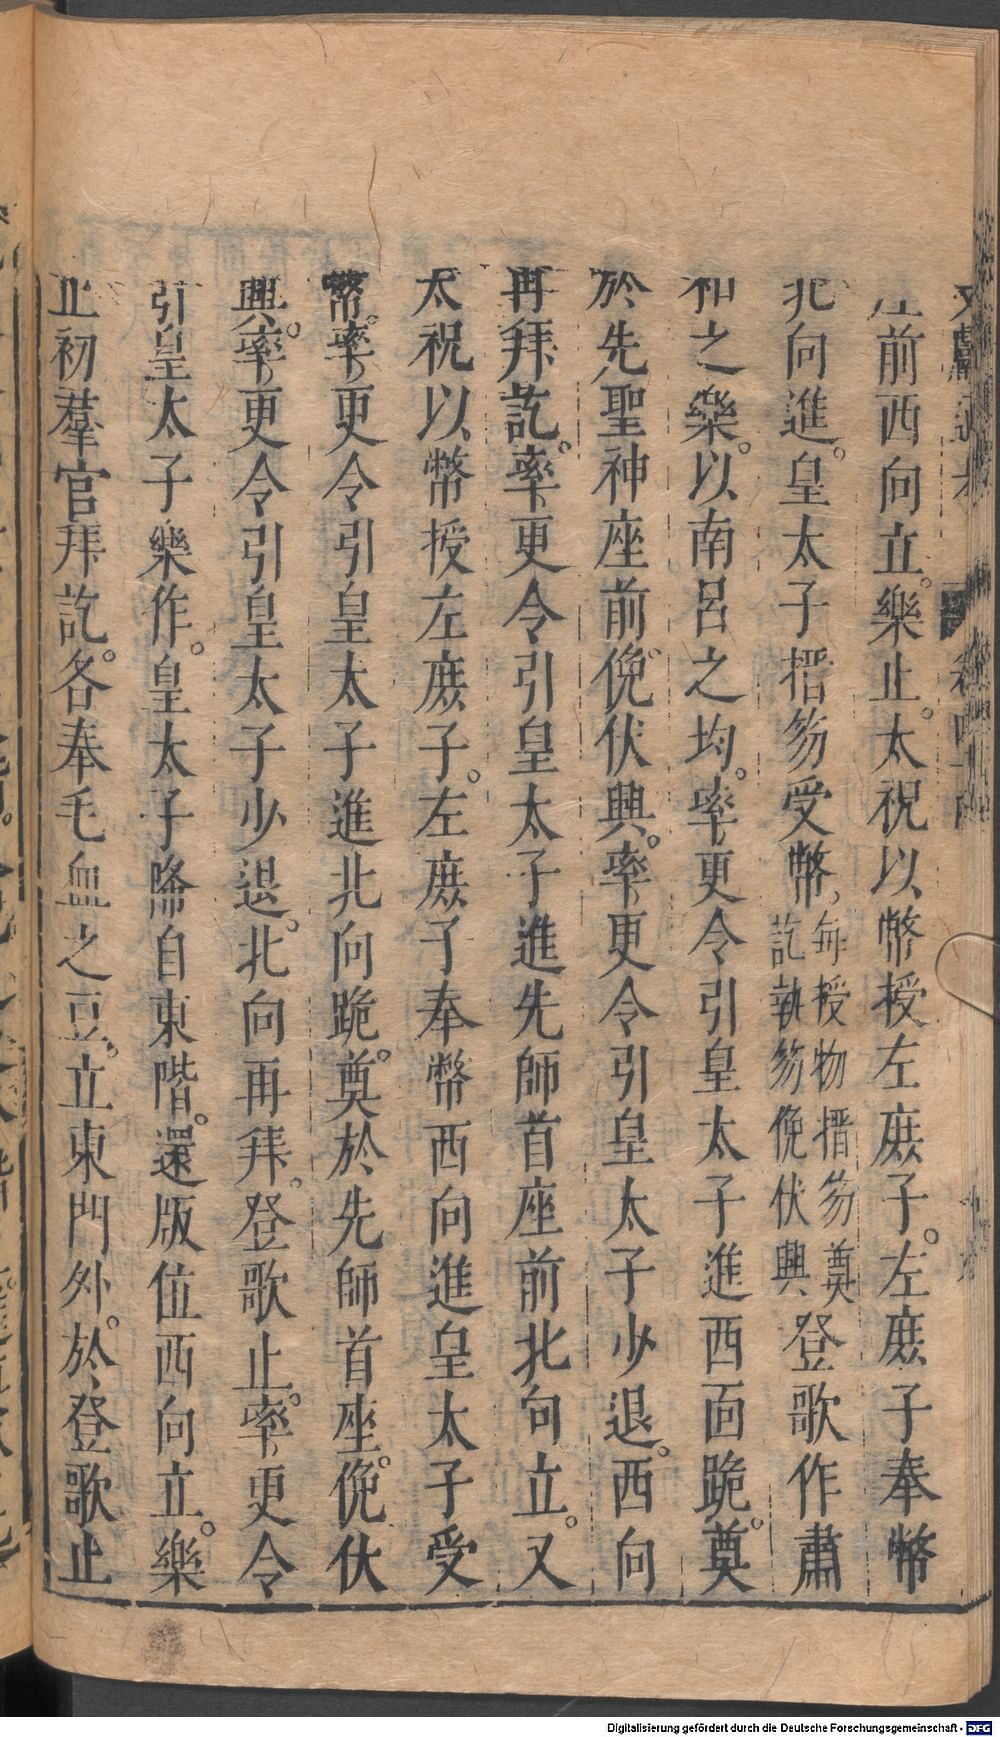 前西向立。樂止。太祝以幣授左庶子。左庶子奉幣
北向進。皇太子搢笏受幣，每授物搢笏奠訖執笏俛伏興登歌作肅
和之樂。以南呂之均。率更令引皇太子進西面跪。奠
於先聖神座前。俛伏興。率更令引皇太子少退。西向
再拜訖。率更令引皇太子進先師首座前北向立。又
太祝以幣授左庶子。左庶子奉幣西向進皇太子受
幣。率更令引皇太子進北向跪。奠於先師首座。俛伏
興。率更令引皇太子少退。北向再拜。登歌止。率更令
引皇太子樂作。皇太子降自東階。還版位西向立。樂
止初羣官拜訖。各奉毛血之豆。立東門外。於登歌止
Digitalisierung gefördert durch die Deutsche Forschungsgemeinschaft - DFG